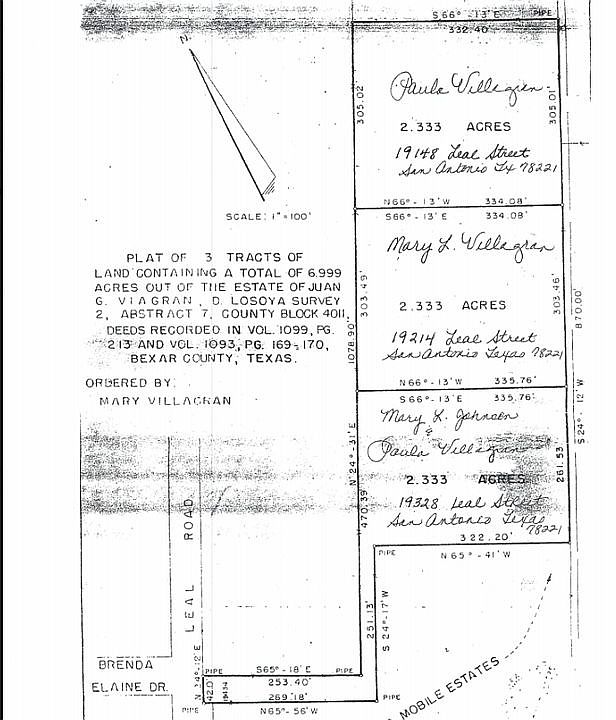 S 66° - 13' E PIPE
332.40'
N
305.02'
Paula Villagran
305.01'
2.333 ACRES
19148 Leal Street
San Antonio Tx 78221
SCALE: 1" = 100'
N66° - 13' W 334.08'
S66° - 13' E 334.08'
Mary L. Villagran
PLAT OF 3 TRACTS OF
LAND CONTAINING A TOTAL OF 6.999
ACRES OUT OF THE ESTATE OF JUAN
G. VIAGRAN, D. LOSOYA SURVEY
2, ABSTRACT 7, COUNTY BLOCK 4011,
DEEDS RECORDED IN VOL. 1099, PG.
213 AND VOL. 1093, PG. 169-170,
BEXAR COUNTY, TEXAS.
303.49'
303.46'
2.333 ACRES
870.00'
1078.90'
19214 Leal Street
San Antonio Texas 78221
N 66° - 13' W 335.76'
S 66° - 13' E 335.76'
ORDERED BY:
MARY VILLAGRAN
S 24° - 12' W
Mary L. Johnson
&
Paula Villagran
N 24° - 31' E
261.53'
2.333 ACRES
470.39'
19328 Leal Street
San Antonio Texas
78221
322.20'
PIPE
N 65° - 41' W
LEAL ROAD
251.13'
S 24° - 17' W
BRENDA
ELAINE DR.
PIPE S65° - 18' E PIPE
253.40'
42.0
269.18'
PIPE N65° - 56' W PIPE
MOBILE ESTATES